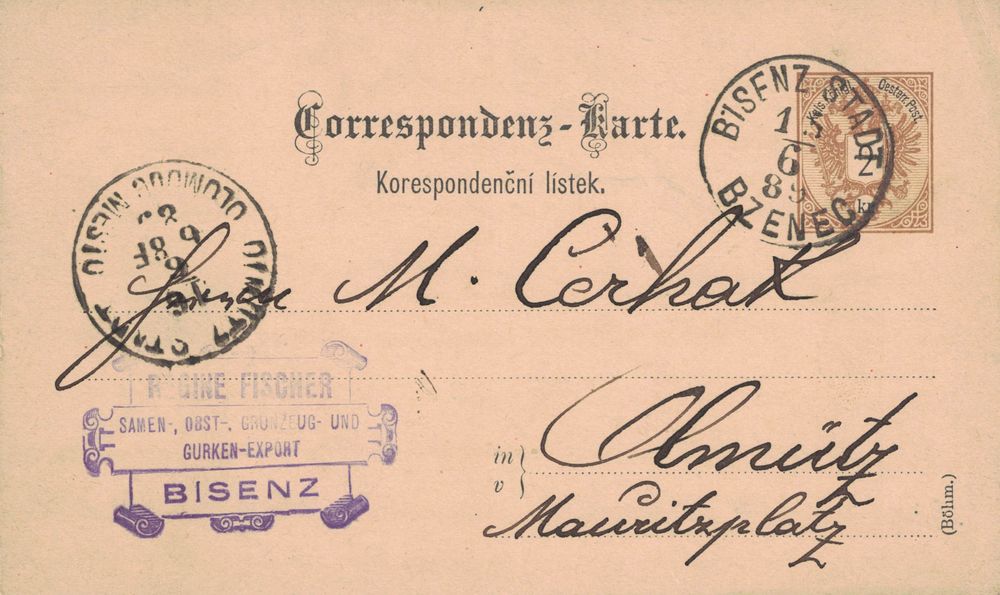 Correspondenz-Karte.
Korespondenční lístek.
Kais. Königl. Oesterr. Post.
2 kr.
BISENZ STADT
1
6
89
BZENEC
OLMÜTZ STADT
OLOMOUC MĚSTO
Herrn M. Cerhak
REGINE FISCHER
SAMEN-, OBST-, GRÜNZEUG- UND
GURKEN-EXPORT
BISENZ
in
v
Olmütz
Mauritzplatz
(Böhm.)